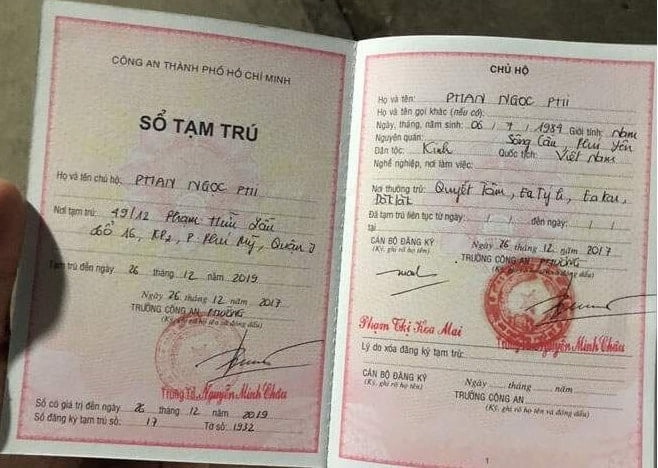 CÔNG AN THÀNH PHỐ HỒ CHÍ MINH
SỔ TẠM TRÚ
Họ và tên chủ hộ: PHAN NGỌC PHI
Nơi tạm trú: 49/12 Phạm Hữu Lầu
tổ 16, KP2, P. Phú Mỹ, Quận 7
Tạm trú đến ngày 26 tháng 12 năm 2019
Ngày 26 tháng 12 năm 2017
TRƯỞNG CÔNG AN PHƯỜNG
(Ký, ghi rõ họ tên và đóng dấu)
Trung Tá Nguyễn Minh Châu
Sổ có giá trị đến ngày 26 tháng 12 năm 2019
Sổ đăng ký tạm trú số: 17 Tờ số: 1932
CHỦ HỘ
Họ và tên: PHAN NGỌC PHI
Họ và tên gọi khác (nếu có):
Ngày, tháng, năm sinh: 06 / 7 / 1989 Giới tính: Nam
Nguyên quán: Sông Cầu, Phú Yên
Dân tộc: Kinh Quốc tịch: Việt Nam
Nghề nghiệp, nơi làm việc:
Nơi thường trú: Quyết Tâm, Ea Tý h, Ea Kar,
Đắk Lắk
Đã tạm trú liên tục từ ngày: / / đến ngày: / /
tại
Ngày 26 tháng 12 năm 2017
CÁN BỘ ĐĂNG KÝ
(Ký, ghi rõ họ tên)
TRƯỞNG CÔNG AN PHƯỜNG
Phạm Thị Hoa Mai
Trung Tá Nguyễn Minh Châu
Lý do xóa đăng ký tạm trú:
Ngày tháng năm
CÁN BỘ ĐĂNG KÝ
(Ký, ghi rõ họ tên)
TRƯỞNG CÔNG AN
(Ký, ghi rõ họ tên và đóng dấu)
1